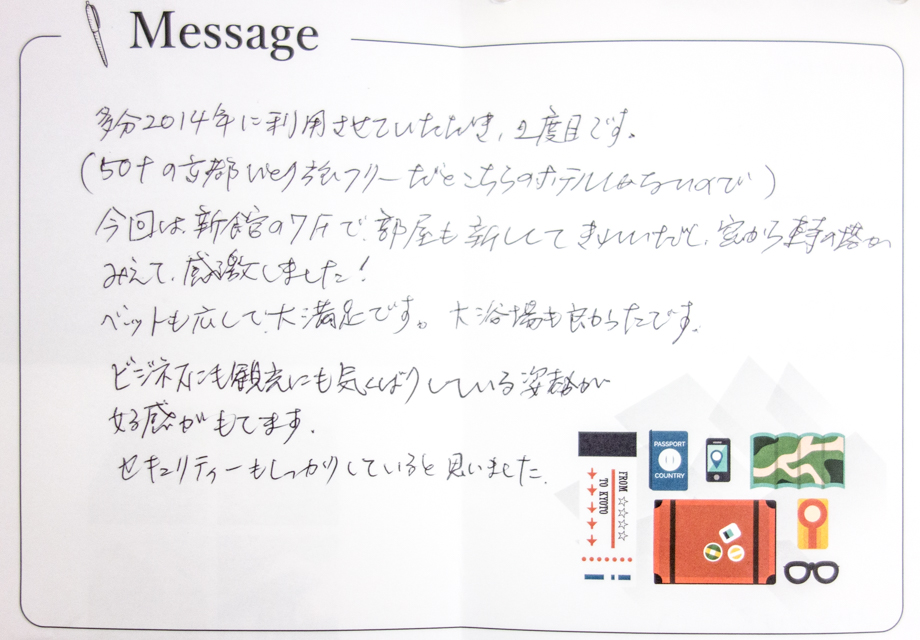 Message
多分2014年に利用させていただき、2度目です。
(50才の京都ひとり旅フリーだとこちらのホテルしかないので)
今回は、新館の7Fで、部屋も新しくてきれいだし、窓から東寺の塔が
みえて、感激しました!
ベットも広くて、大満足です。大浴場も良かったです。
ビジネスにも観光にも気くばりしている姿勢が
好感がもてます。
セキュリティーもしっかりしていると思いました。
PASSPORT
COUNTRY
FROM ☆☆☆☆
TO KYOTO